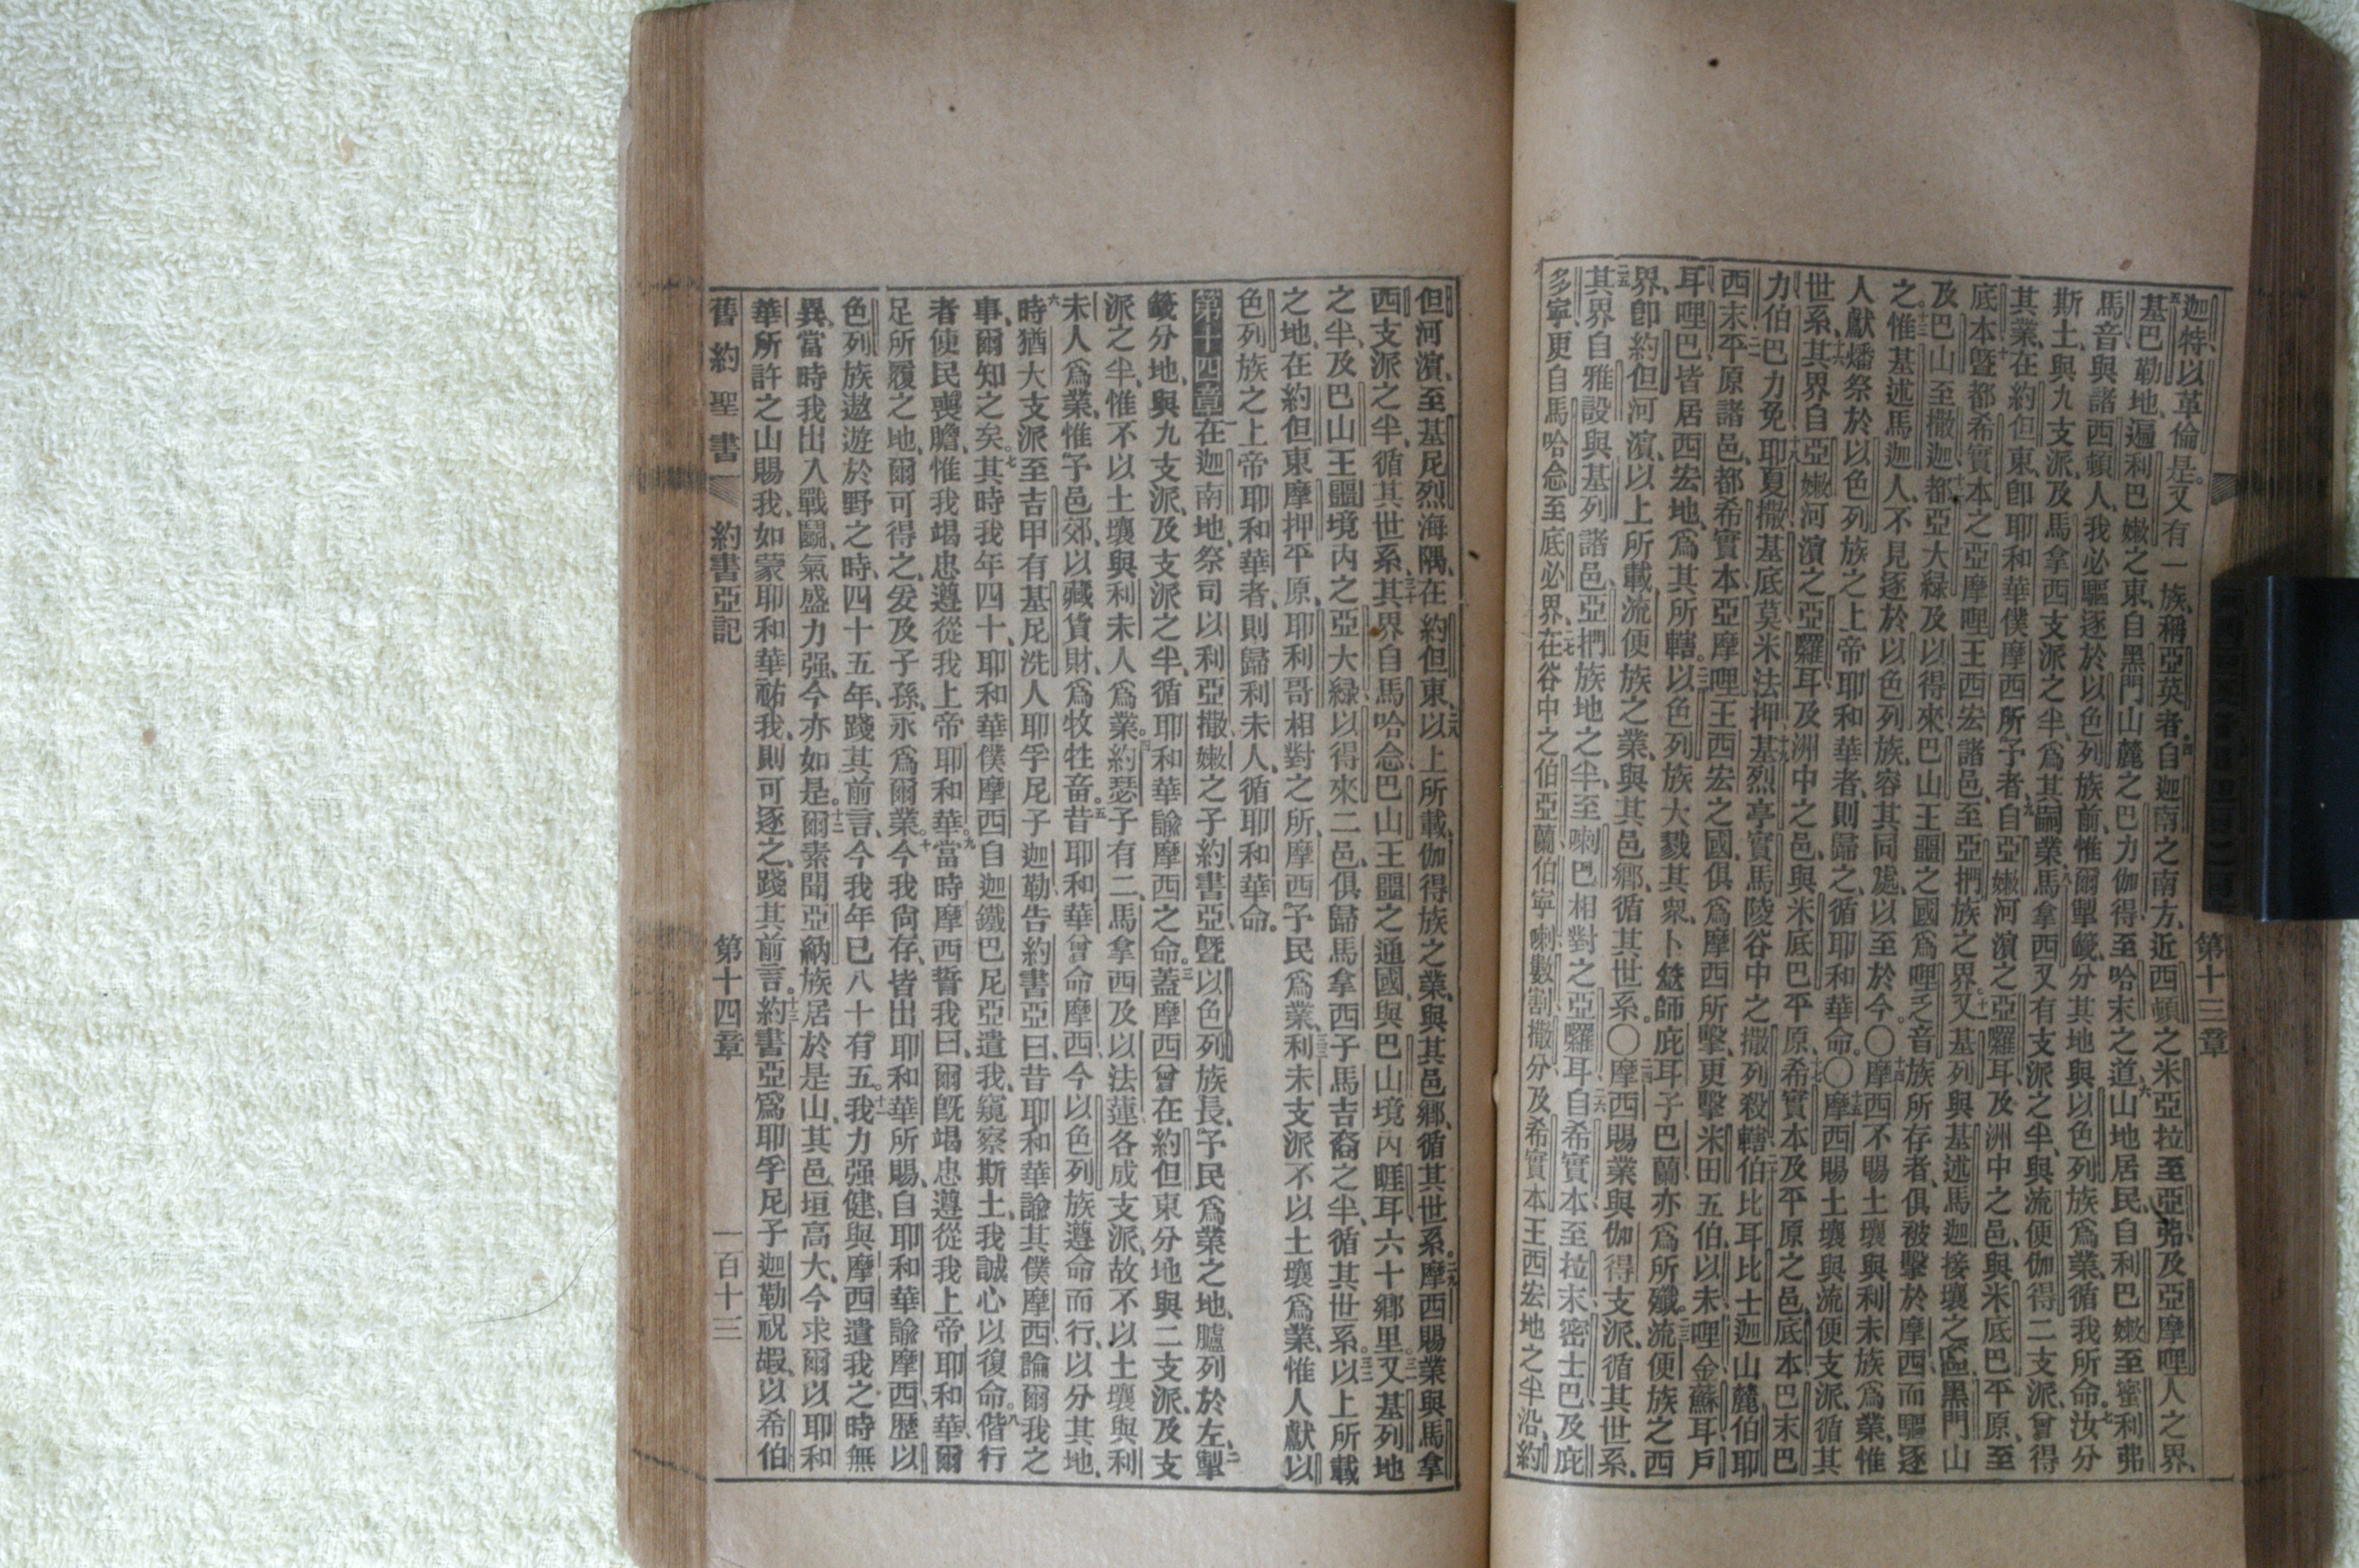 第十三章
迦特、以革倫是。又有一族、稱亞英者。四自迦南之南方、近西頓之米亞拉、至亞弗、及亞摩哩人之界、
五基巴勒地、遍利巴嫩之東、自黑門山麓之巴力伽得、至哈末之道、六山地居民、自利巴嫩至蜜利弗
馬音、與諸西頓人、我必驅逐於以色列族前、惟爾掣籤分其地、與以色列族爲業、循我所命。七汝分
斯土、與九支派、及馬拿西支派之半、爲其嗣業。八馬拿西又有支派之半、與流便伽得二支派、曾得
其業、在約但東、卽耶和華僕摩西所予者。九自亞嫩河濱之亞囉耳、及洲中之邑、與米底巴平原、至
底本、十曁都希實本之亞摩哩王西宏諸邑、至亞捫族之界。十一又基列與基述馬迦接壤之區、黑門山
及巴山至撒迦、十二都亞大綠及以得來巴山王噩之國、爲哩乏音族所存者、俱被擊於摩西而驅逐
之。十三惟基述馬迦人、不見逐於以色列族、容其同處、以至於今。〇十四摩西不賜土壤與利未族爲業、惟
人獻燔祭於以色列族之上帝耶和華者、則歸之、循耶和華命。〇十五摩西賜土壤與流便支派、循其
世系、十六其界自亞嫩河濱之亞囉耳、及洲中之邑、與米底巴平原、十七希實本及平原之邑、底本巴末巴
力伯巴力免、十八耶夏撒基底莫米法押、十九基烈亭實馬陵谷中之撒列殺轄、二十伯比耳比士迦山麓、伯耶
西末、二一平原諸邑、都希實本亞摩哩王西宏之國、俱爲摩西所擊、更擊米田五伯、以未哩金蘇耳戶
耳哩巴皆居西宏地、爲其所轄。二二以色列族大戮其衆、卜筮師庇耳子巴蘭亦爲所殲。二三流便族之西
界、卽約但河濱、以上所載、流便族之業、與其邑鄉、循其世系。〇二四摩西賜業與伽得支派、循其世系、
二五其界自雅設與基列諸邑、亞捫族地之半、至喇巴相對之亞囉耳、二六自希實本至拉末密士巴、及庇
多寧、更自馬哈念至底必界、二七在谷中之伯亞蘭伯寧喇數割撒分、及希實本王西宏地之半、沿約
但河濱、至基尼烈海隅、在約但東、二八以上所載、伽得族之業、與其邑鄉、循其世系。二九摩西賜業與馬拿
西支派之半、循其世系、三十其界自馬哈念巴山王噩之通國、與巴山境內睚耳六十鄉里。三一又基列地
之半、及巴山王噩境內之亞大綠以得來二邑、俱歸馬拿西子馬吉裔之半、循其世系。三二以上所載
之地、在約但東摩押平原、耶利哥相對之所、摩西予民爲業、三三利未支派不以土壤爲業、惟人獻以
色列族之上帝耶和華者、則歸利未人、循耶和華命。
第十四章在迦南地、祭司以利亞撒、嫩之子約書亞、曁以色列族長、予民爲業之地、臚列於左、二掣
籤分地、與九支派、及支派之半、循耶和華諭摩西之命。三蓋摩西曾在約但東分地、與二支派、及支
派之半、惟不以土壤與利未人爲業。四約瑟子有二、馬拿西及以法蓮、各成支派、故不以土壤與利
未人爲業、惟予邑郊、以藏貨財、爲牧牲畜。五昔耶和華曾命摩西、今以色列族遵命而行、以分其地、
六時猶大支派至吉甲、有基尼洗人耶孚尼子迦勒告約書亞曰、昔耶和華諭其僕摩西、論爾我之
事、爾知之矣。七其時我年四十、耶和華僕摩西自迦鐵巴尼亞遣我、窺察斯土、我誠心以復命。八偕行
者使民喪膽、惟我竭忠遵從我上帝耶和華。九當時摩西誓我曰、爾旣竭忠遵從我上帝耶和華、爾
足所履之地、爾可得之、爰及子孫、永爲爾業。十今我尙存、皆出耶和華所賜、自耶和華諭摩西、歷以
色列族遨遊於野之時、四十五年、踐其前言、今我年已八十有五。十一我力强健、與摩西遣我之時無
異、當時我出入戰鬭、氣盛力强、今亦如是。十二爾素聞亞衲族居於是山、其邑垣高大、今求爾以耶和
華所許之山賜我、如蒙耶和華祐我、則可逐之、踐其前言。十三約書亞爲耶孚尼子迦勒祝嘏、以希伯
舊約聖書 約書亞記 第十四章 一百十三